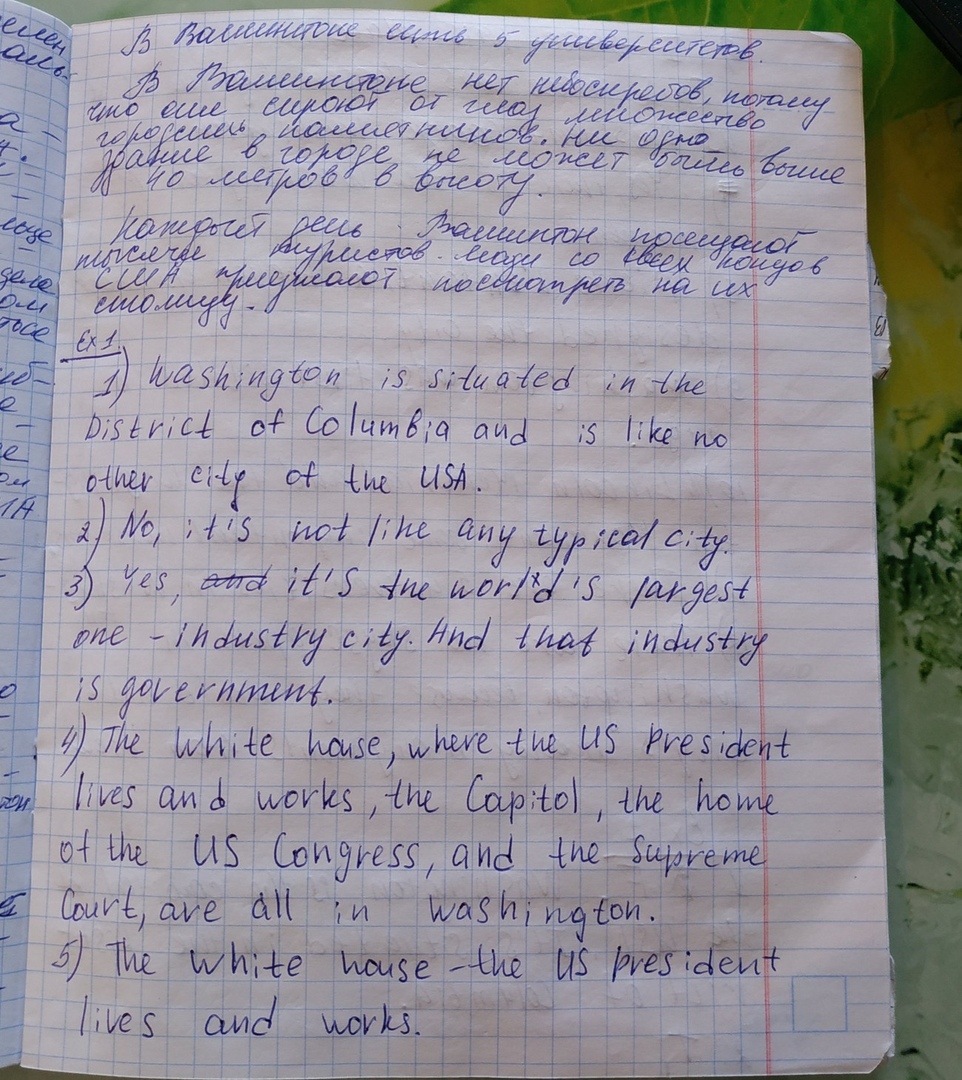 В Вашингтоне есть 5 университетов.
В Вашингтоне нет небоскребов, потому
что они скроют от глаз множество
городских памятников. Ни одно
здание в городе не может быть выше
40 метров в высоту.
Каждый день Вашингтон посещают
тысячи туристов. Люди со всех концов
США приезжают посмотреть на их
столицу.
Ex 1
1) Washington is situated in the
District of Columbia and is like no
other city of the USA.
2) No, it's not like any typical city.
3) Yes, and it's the world's largest
one - industry city. And that industry
is government.
4) The White house, where the US President
lives and works, the Capitol, the home
of the US Congress, and the Supreme
Court, are all in Washington.
5) The White house - the US president
lives and works.